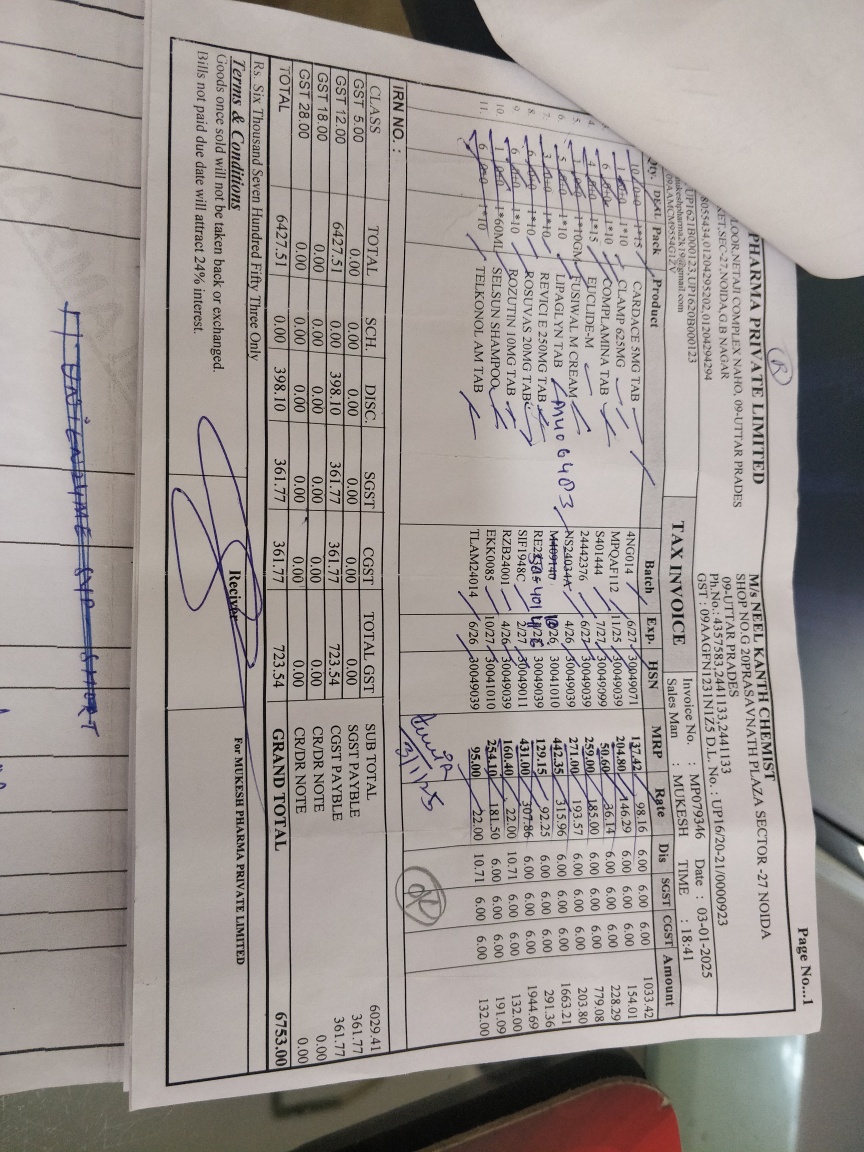 Page No...1
PHARMA PRIVATE LIMITED
LOOR,NETAJI COMPLEX NAHO, 09-UTTAR PRADES
KET,SEC-27,NOIDA,G.B NAGAR
8055434,01204295202,01204294294
UP1621B000123,UP1620B000123
mukeshpharma2k19@gmail.com
09AAMCM9554G1ZV
R
M/s NEEL KANTH CHEMIST
SHOP NO.G 20PRASAVNATH PLAZA SECTOR -27 NOIDA
09-UTTAR PRADES
Ph.No.: 4357583,2441133,2441133
GST : 09AAGFN1231N1Z5 D.L. No. : UP16/20-21/0000923
TAX INVOICE
Invoice No. : MP079346 Date : 03-01-2025
Sales Man : MUKESH TIME : 18:41
Qty. DEAL Pack Product Batch Exp. HSN MRP Rate Dis SGST CGST Amount
10 0+0 1*15 CARDACE 5MG TAB 4NG014 6/27 30049071 137.42 98.16 6.00 6.00 6.00 1033.42
1 0+0 1*10 CLAMP 625MG MPQAF112 11/25 30049039 204.80 146.29 6.00 6.00 6.00 154.01
6 1*10 COMPLAMINA TAB S401444 7/27 30049099 50.60 36.14 6.00 6.00 6.00 228.29
4. 4 0+0 1*15 EUCLIDE-M 24442376 6/27 30049039 259.00 185.00 6.00 6.00 6.00 779.08
5. 1 0+0 1*10GM FUSIWAL M CREAM NS24034A 4/26 30049039 271.00 193.57 6.00 6.00 6.00 203.80
6. 5 0+0 1*10 LIPAGLYN TAB M409147 /26 30041010 442.35 315.96 6.00 6.00 6.00 1663.21
M406483
7. 3 0+0 1*10 REVICI E 250MG TAB /26 30049039 129.15 92.25 6.00 6.00 6.00 291.36
8. 6 0+0 1*10 ROSUVAS 20MG TAB SIF1948C 2/27 30049011 431.00 307.86 6.00 6.00 6.00 1944.69
9. 6 0+0 1*10 ROZUTIN 10MG TAB RZB24001 4/26 30049039 160.40 22.00 10.71 6.00 6.00 132.00
10. 1 0+0 1*60ML SELSUN SHAMPOO EKK0085 10/27 30041010 254.10 181.50 6.00 6.00 6.00 191.09
11. 6 0+0 1*10 TELKONOL AM TAB TLAM24014 6/26 30049039 95.00 22.00 10.71 6.00 6.00 132.00
3/1/25
OK
IRN NO. :
CLASS TOTAL SCH. DISC. SGST CGST TOTAL GST
GST 5.00 0.00 0.00 0.00 0.00 0.00 0.00
GST 12.00 6427.51 0.00 398.10 361.77 361.77 723.54
GST 18.00 0.00 0.00 0.00 0.00 0.00 0.00
GST 28.00 0.00 0.00 0.00 0.00 0.00 0.00
TOTAL 6427.51 0.00 398.10 361.77 361.77 723.54
SUB TOTAL 6029.41
SGST PAYBLE 361.77
CGST PAYBLE 361.77
CR/DR NOTE 0.00
CR/DR NOTE 0.00
GRAND TOTAL 6753.00
Rs. Six Thousand Seven Hundred Fifty Three Only
Terms & Conditions
Goods once sold will not be taken back or exchanged.
Bills not paid due date will attract 24% interest.
Reciver
For MUKESH PHARMA PRIVATE LIMITED
UNIENZYME SYP SHORT